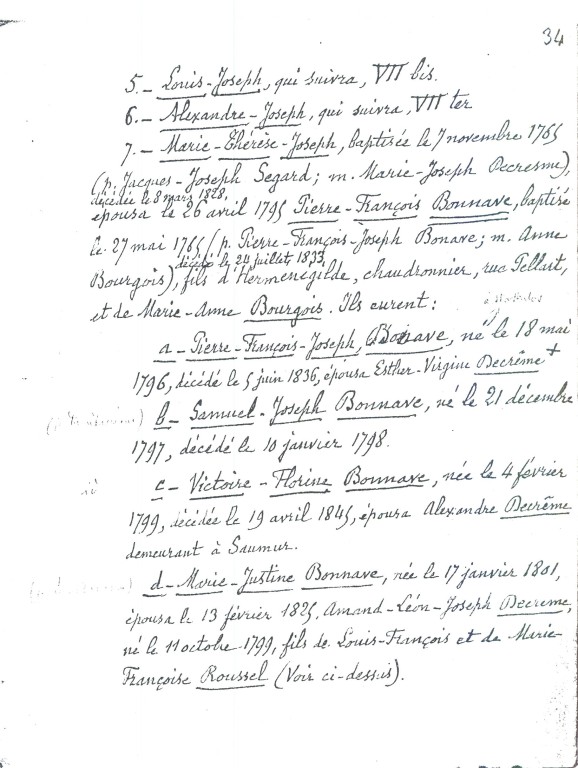 34
5.- Louis-Joseph, qui suivra, VII bis.
6.- Alexandre-Joseph, qui suivra, VII ter
7.- Marie-Thérèse-Joseph, baptisée le 7 novembre 1765
(p. Jacques-Joseph Segard; m. Marie-Joseph Decresme),
décédée le 8 mars 1828,
épousa le 26 avril 1795 Pierre-François Bonnave, baptisé
le 27 mai 1765 (p. Pierre-François-Joseph Bonave; m. Anne
décédé le 24 juillet 1833
Bourgois), fils d'Hermenegilde, chaudronnier, rue Pellart,
et de Marie-Anne Bourgois. Ils eurent:
a - Pierre-François-Joseph, Bonave, né le 18 mai
1796, décédé le 5 juin 1836, épousa Esther-Virginie Decrême +
b - Samuel-Joseph Bonnave, né le 21 décembre
1797, décédé le 10 janvier 1798.
c - Victoire-Florine Bonnave, née le 4 février
1799, décédée le 19 avril 1845, épousa Alexandre Decrême
demeurant à Saumur.
d - Marie-Justine Bonnave, née le 17 janvier 1801,
épousa le 13 février 1825, Amand-Léon-Joseph Decreme,
né le 11 octobre 1799, fils de Louis-François et de Marie-
Françoise Roussel (Voir ci-dessus).